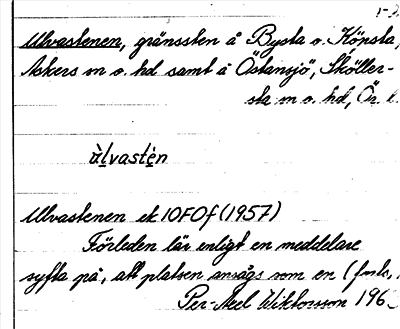 Ulvastenen, gränssten å Bysta o. Köpsta,
Askers sn o. hd samt å Östansjö, Sköller-
sta sn o. hd, Ör. l.
ùlvastén
Ulvastenen ek 10F0f (1957)
Förleden lär enligt en meddelare
syfta på, att platsen ansågs som en (forts.
Per-Axel Wiktorsson 196